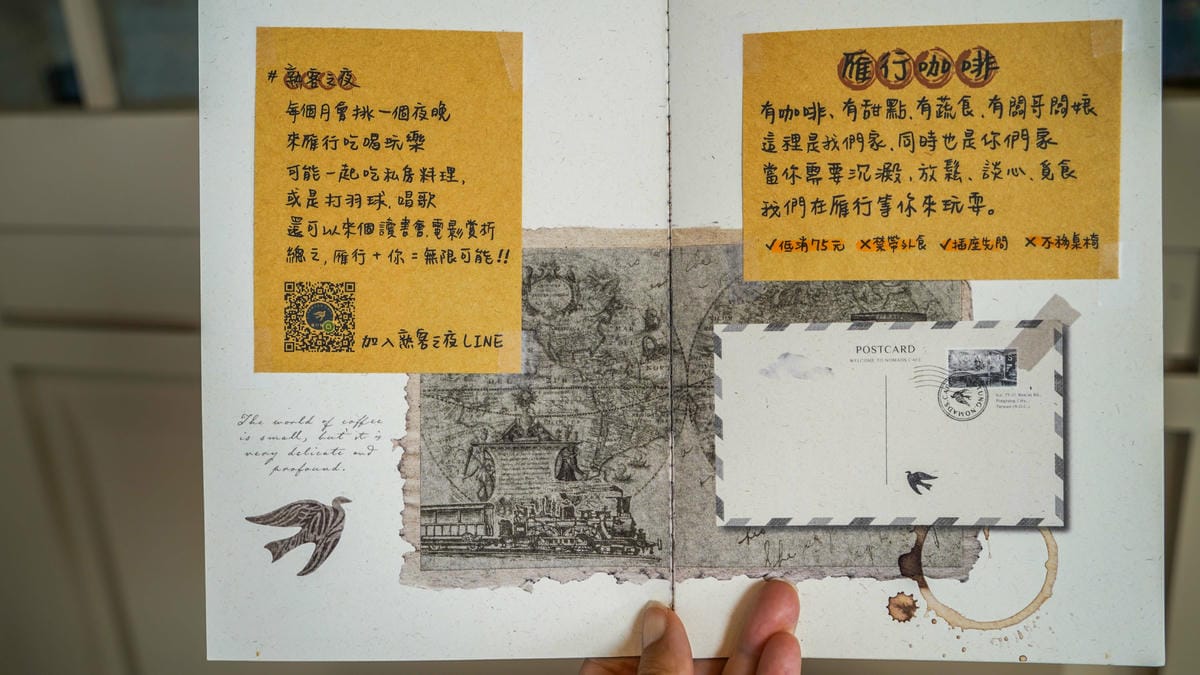 #熟客之夜
每個月會挑一個夜晚
來雁行吃喝玩樂
可能一起吃私房料理,
或是打羽球、唱歌
還可以來個讀書會、電影賞析
總之, 雁行+你=無限可能!!
加入熟客之夜LINE
The world of coffee
is small, but it is
very delicate and
profound.
雁行咖啡
有咖啡、有甜點、有蔬食、有闆哥闆娘
這裡是我們家、同時也是你們家
當你需要沉澱, 放鬆、談心、覓食
我們在雁行等你來玩耍。
✓低消75元 ×禁帶外食 ✓插座先問 ×不移桌椅
POSTCARD
WELCOME TO NOMADS CAFE
Pingtung City,
Taiwan (R.O.C.)